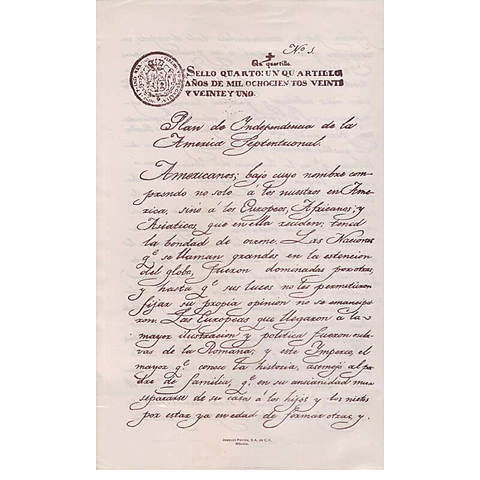 Nº 1.
Un quartillo
SELLO QUARTO: UN QUARTILLO,
AÑOS DE MIL OCHOCIENTOS VEINTE
Y VEINTE Y UNO.
Plan de Independencia de la
America Septentrional.
Americanos; bajo cuyo nombre com-
prendo no solo á los nuestros en Ame-
rica, sino á los Europeos, Africanos, y
Asiaticos que en ella reciden: tened
la bondad de oirme. Las Naciones
q.e se llaman grandes en la estencion
del globo, fueron dominadas por otras,
y hasta q.e sus luces no les permitieron
fijar su propia opinion no se emancipa-
ron. Las Europeas que llegaron a la
mayor ilustracion y politica fueron escla-
vas de la Romana; y este Imperio, el
mayor q.e conoce la historia, asemejó al pa-
dre de familia, q.e en su ancianidad mira
separarse de su casa á los hijos y los nietos
por estar ya en edad de formar otras, y
MÉXICO.